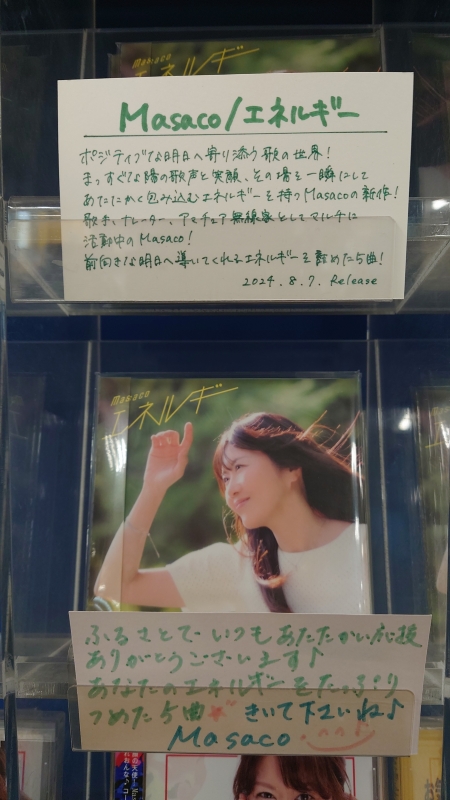 Masaco
エネルギー
Masaco/エネルギー
ポジティブな明日へ寄り添う歌の世界!
まっすぐな陽の歌声と笑顔、その場を一瞬にして
あたたかく包み込むエネルギーを持つMasacoの新作!
歌手、ナレーター、アマチュア無線家としてマルチに
活動中のMasaco!
前向きな明日へ導いてくれるエネルギーを詰めた5曲!
2024.8.7. Release
masaco
エネルギー
ふるさとで いつも あたたかい応援
ありがとうございます♪
あなたのエネルギーをたっぷり
つめた5曲 きいて下さいね♪
Masaco